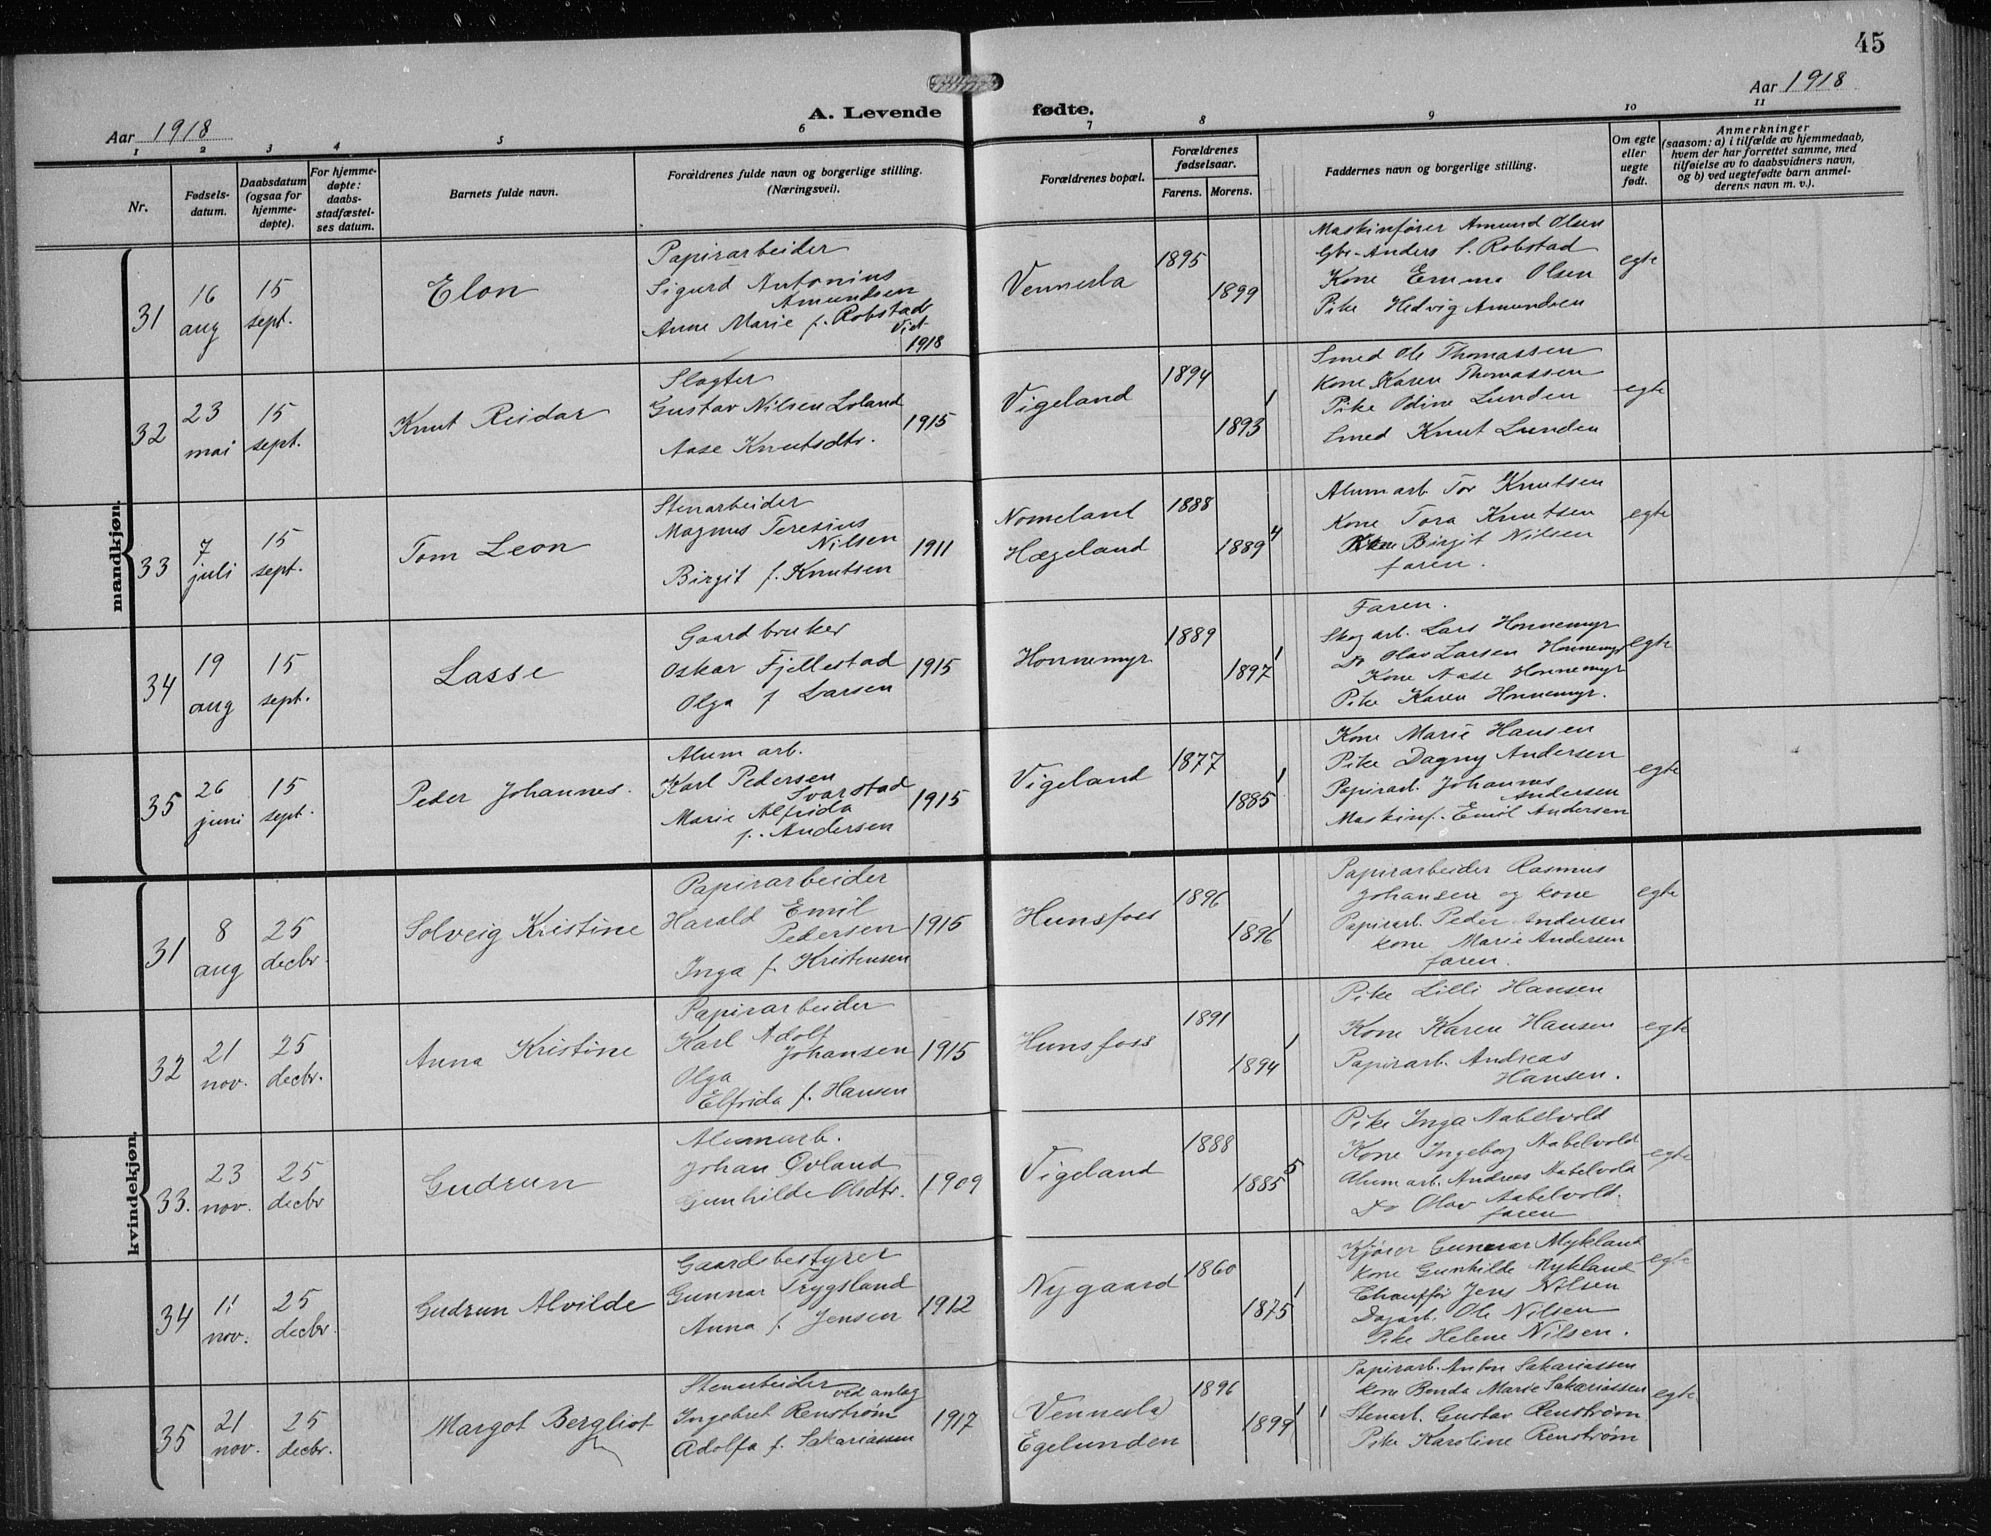 45
Aar 1918
A. Levende fødte.
Aar 1918
1 2 3 4 5 6 7 8 9 10 11
Nr.
Fødsels-
datum.
Daabsdatum
(ogsaa for
hjemme-
døpte).
For hjemme-
døpte:
daabs-
stadfæstel-
ses datum.
Barnets fulde navn.
Forældrenes fulde navn og borgerlige stilling.
(Næringsvei).
Forældrenes bopæl.
Forældrenes
fødselsaar.
Farens. Morens.
Faddernes navn og borgerlige stilling.
Om egte
eller
uegte
født.
Anmerkninger
(saasom: a) i tilfælde av hjemmedaab,
hvem der har forrettet samme, med
tilføielse av to daabsvidners navn,
og b) ved uegtefødte barn anmel-
derens navn m. v.).
mandkjøn.
31
16
aug
15
sept.
Elon
Papirarbeider
Sigurd Antonius
Amundsen
Anne Marie f. Robstad
Viet
1918
Vennesla
1895
1899
1
Maskinfører Amund Olsen
Gbr. Anders S. Robstad
Kone Emma Olsen
Pike Hedvig Amundsen
egte
32
23
mai
15
sept.
Knut Reidar
Slagter
Gustav Nilsen Loland
Aase Knutsdtr.
1915
Vigeland
1894
1893
1
Smed Ole Thomassen
Kone Karen Thomassen
Pike Odine Lunden
Smed Knut Lunden
egte
33
7
juli
15
sept.
Tom Leon
Stenarbeider
Magnus Teresius
Nilsen
Birgit f. Knutsen
1911
Nomeland
Hægeland
1888
1889
4
Alumarb. Tor Knutsen
Kone Tora Knutsen
Birgit Nilsen
faren.
egte
34
19
aug
15
sept.
Lasse
Gaardbruker
Oskar Fjellestad
Olga f Larsen
1915
Honnemyr
1889
1897
1
Faren.
Skogarb. Lars Honnemyr
Do Olav Larsen Honnemyr
Kone Aase Honnemyr
Pike Karen Honnemyr.
egte
35
26
juni
15
sept.
Peder Johannes.
Alum arb.
Karl Pedersen
Svarstad
Marie Alfrida
f. Andersen
1915
Vigeland
1877
1885
1
Kone Marie Hansen
Pike Dagny Andersen
Papirarb. Johannes
Andersen
Maskinf. Emil Andersen
egte
kvindekjøn.
31
8
aug
25
decbr.
Solveig Kristine
Papirarbeider
Harald Emil
Pedersen
Inga f. Kristensen
1915
Hunsfoss
1896
1896
1
Papirarbeider Rasmus
Johansen og kone
Papirarb. Peder Andersen
kone Marie Andersen
faren.
egte
32
21
nov.
25
decbr.
Anna Kristine
Papirarbeider
Karl Adolf
Johansen
Olga
Elfrida f. Hansen
1915
Hunsfoss
1891
1894
1
Pike Lilli Hansen
Kone Karen Hansen
Papirarb. Andreas
Hansen.
egte
33.
23
nov.
25
decbr
Gudrun
Alumarb.
Johan Øvland
Gunhilde Olsdtr.
1909
Vigeland
1888
1885
5
Pike Inga Aabelvold
Kone Ingeborg Aabelvold
Alumarb. Andreas Aabelvold
Do Olav Aabelvold.
faren
egte
34
11
nov.
25
decbr.
Gudrun Alvilde
Gaardsbestyrer
Gunnar Trygsland
Anna f. Jensen
1912
Nygaard
1860
1875
1
Kjører Gunnar Mykland
kone Gunhilde Mykland
Chauffør Jens Nilsen
Dagarb. Ole Nilsen
Pike Helene Nilsen.
egte
35
21
nov.
25
decbr.
Margot Bergliot
Stenarbeider ved anlæg
Ingebret Renstrøm
Adolfa f. Sakariassen
1917
(Vennesla)
Egelunden
1896
1899
1 1
Papirarb. Anton Sakariassen
kone Benda Marie Sakariassen
Stenarb. Gustav Renstrøm
Pike Karoline Renstrøm
egte